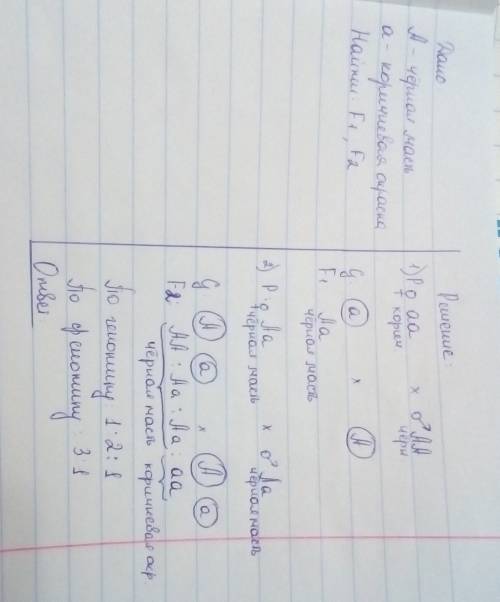 Дано
А - чёрная масть
а - коричневая окраска
Найти: F1, F2
Решение:
1) P ♀ аа х ♂ АА
корич чёрн
G (а) х (А)
F1 Аа
чёрная масть
2) P: ♀ Аа х ♂ Аа
чёрная масть чёрная масть
G (А) (а) х (А) (а)
F2: АА : Аа : Аа : аа
чёрная масть коричневая окр.
По генотипу 1:2:1
По фенотипу: 3 1
Ответ: